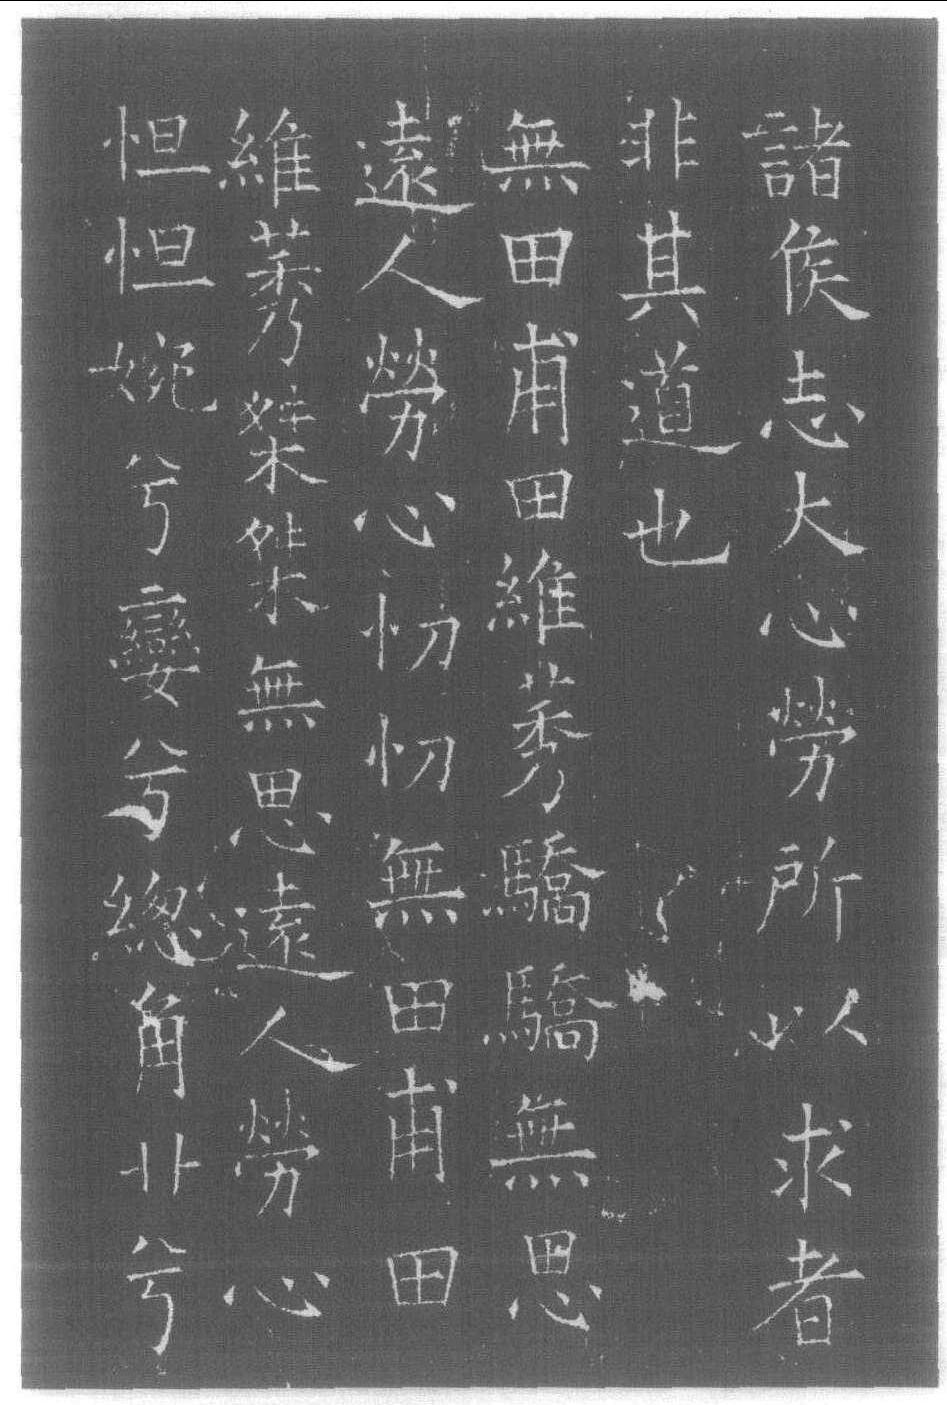 諸侯志大心勞所以求者
非其道也
無田甫田維莠驕驕無思
遠人勞心忉忉無田甫田
維莠桀桀無思遠人勞心
怛怛婉兮孌兮總角丱兮